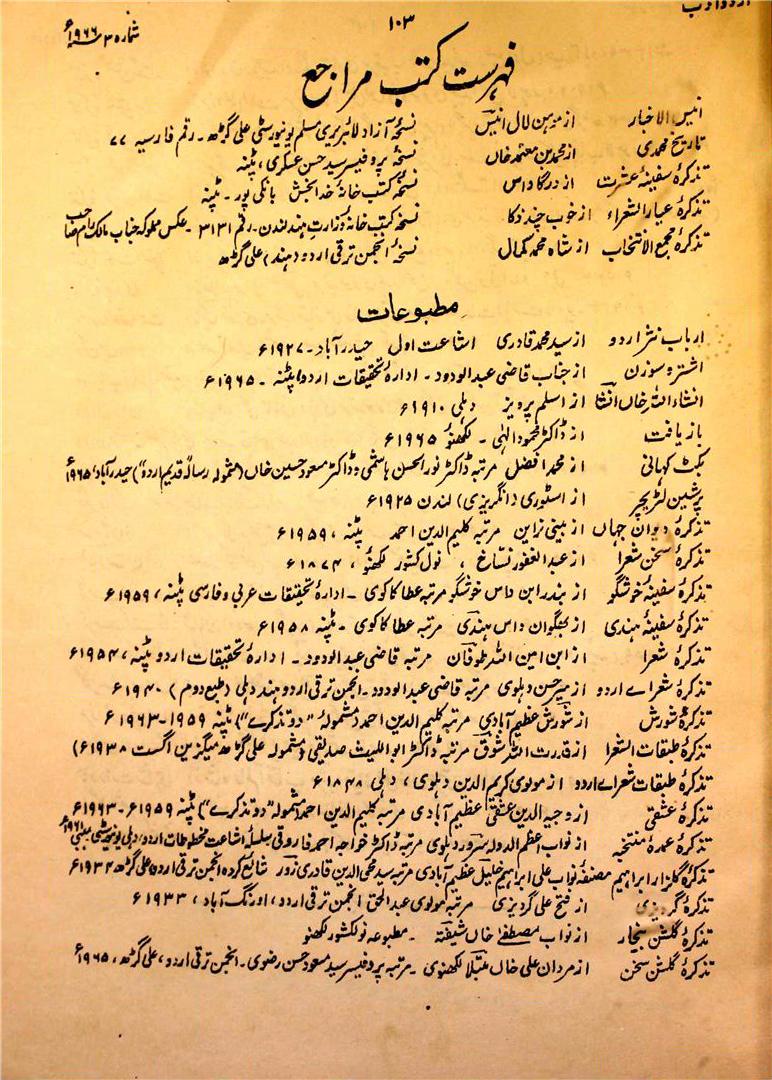 اردو ادب
۱۰۳
شمارہ ۳ سنہ ۱۹۶۶ء
فہرست کتب مراجع
انیس الاخبار از موہن لال انیس نسخۂ آزاد لائبریری مسلم یونیورسٹی علی گڑھ۔ رقم فارسیہ ۷۷
تاریخ محمدی از محمد بن معتمد خاں نسخۂ پروفیسر سید حسن عسکری، پٹنہ
تذکرۂ سفینۂ عشرت از درگا داس نسخۂ کتب خانۂ خدا بخش بانکی پور۔ پٹنہ
تذکرۂ عیار الشعراء از خوب چند ذکا نسخۂ کتب خانۂ وزارتِ ہند لندن۔ رقم ۳۱۳۱۔ عکس مملوکہ جناب مالک رام صاحب
تذکرۂ مجمع الانتخاب از شاہ محمد کمال نسخۂ انجمن ترقی اردو (ہند) علی گڑھ
مطبوعات
ارباب نثر اردو از سید محمد قادری اشاعت اول حیدرآباد۔ ۱۹۲۷ء
اشتر و سوزن از جناب قاضی عبدالودود۔ ادارۂ تحقیقات اردو، پٹنہ۔ ۱۹۶۵ء
انشاء اللہ خاں انشا از اسلم پرویز دہلی ۱۹۱۰ء
باز یافت از ڈاکٹر محمود الٰہی۔ لکھنؤ ۱۹۶۵ء
بکٹ کہانی از محمد افضل مرتبہ ڈاکٹر نور الحسن ہاشمی و ڈاکٹر مسعود حسین خاں (مشمولہ رسالہ "قدیم اردو") حیدرآباد، ۱۹۶۵ء
پرشین لٹریچر از اسٹوری (انگریزی) لندن ۱۹۲۵ء
تذکرۂ دیوان جہاں از بینی نراین مرتبہ کلیم الدین احمد پٹنہ، ۱۹۵۹ء
تذکرۂ سخن شعرا از عبدالغفور نساخ، نول کشور لکھنؤ، ۱۸۷۴ء
تذکرۂ سفینۂ خوشگو از بندرابن داس خوشگو مرتبہ عطا کاکوی۔ ادارۂ تحقیقات عربی و فارسی پٹنہ، ۱۹۵۹ء
تذکرۂ سفینۂ ہندی از بھگوان داس ہندی مرتبہ عطا کاکوی۔ پٹنہ ۱۹۵۸ء
تذکرۂ شعرا از ابن امین اللہ طوفان مرتبہ قاضی عبدالودود۔ ادارۂ تحقیقات اردو پٹنہ، ۱۹۵۴ء
تذکرۂ شعراے اردو از میر حسن دہلوی مرتبہ قاضی عبدالودود۔ انجمن ترقی اردو ہند دہلی (طبع دوم) ۱۹۴۰ء
تذکرۂ شورش از شورش عظیم آبادی مرتبہ کلیم الدین احمد (مشمولہ "دو تذکرے") پٹنہ ۱۹۵۹-۱۹۶۳ء
تذکرۂ طبقات الشعرا از قدرت اللہ شوق مرتبہ ڈاکٹر ابو اللیث صدیقی (مشمولہ علی گڑھ میگزین اگست ۱۹۳۸ء)
تذکرۂ طبقات شعراے اردو از مولوی کریم الدین دہلوی، دہلی ۱۸۴۸ء
تذکرۂ عشقی از وجیہ الدین عشقی عظیم آبادی مرتبہ کلیم الدین احمد (مشمولہ "دو تذکرے") پٹنہ ۱۹۵۹-۱۹۶۳ء
تذکرۂ عمدۂ منتخبہ از نواب اعظم الدولہ سرور دہلوی مرتبہ ڈاکٹر خواجہ احمد فاروقی سلسلۂ اشاعت مخطوطات اردو، دہلی یونیورسٹی ۱۹۶۱ء
تذکرۂ گلزار ابراہیم مصنفہ نواب علی ابراہیم خلیل عظیم آبادی مرتبہ سید محی الدین قادری زور شائع کردہ انجمن ترقی اردو، علی گڑھ ۱۹۳۴ء
تذکرۂ گردیزی از فتح علی گردیزی مرتبہ مولوی عبدالحق انجمن ترقی اردو، اورنگ آباد، ۱۹۳۳ء
تذکرۂ گلشن بیخار از نواب مصطفیٰ خاں شیفتہ۔ مطبوعہ نولکشور لکھنؤ
تذکرۂ گلشن سخن از مردان علی خاں مبتلا لکھنوی۔ مرتبہ پروفیسر سید مسعود حسن رضوی۔ انجمن ترقی اردو، علی گڑھ، ۱۹۶۵ء